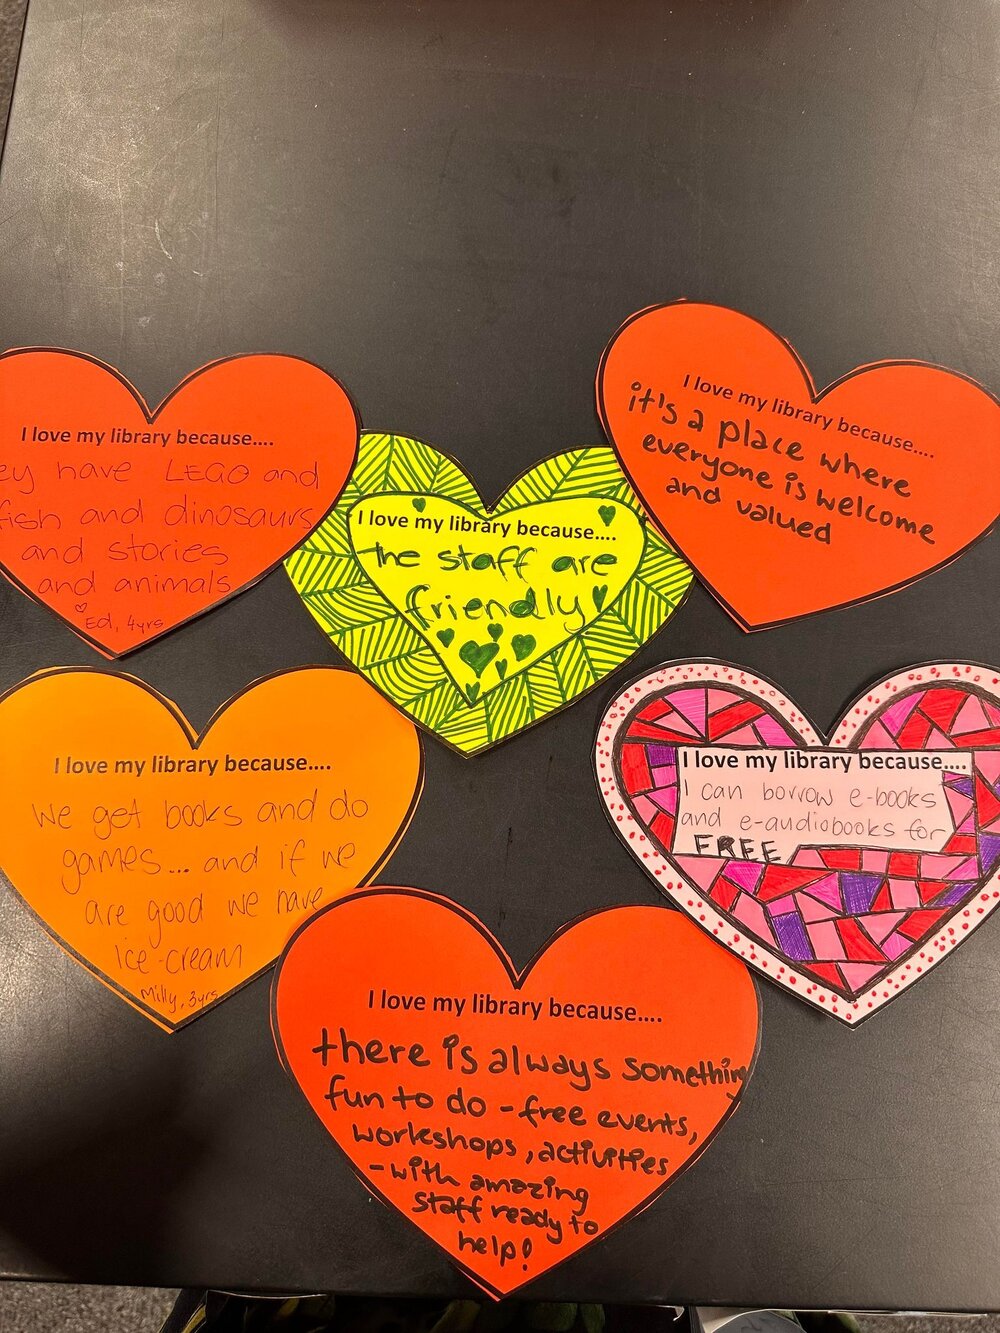 I love my library because....
ey have LEGO and
fish and dinosaurs
and stories
and animals
Ed, 4yrs
I love my library because....
the staff are
friendly
I love my library because....
it's a place where
everyone is welcome
and valued
I love my library because....
We get books and do
games... and if we
are good we have
ice-cream
Milly, 3yrs
I love my library because....
I can borrow e-books
and e-audiobooks for
FREE
I love my library because....
there is always something
fun to do - free events,
workshops, activities
- with amazing
staff ready to
help!